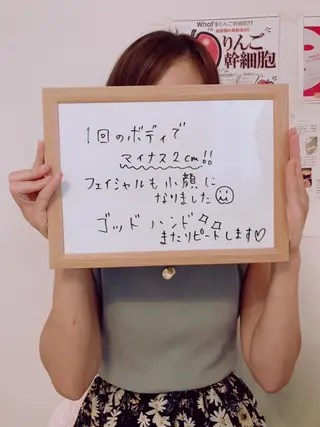 What'sりんご幹細胞??
りんご
幹細胞
1回のボディで
マイナス2cm!!
フェイシャルも小顔に
なりました
ゴッドハンド
またリピートします♡